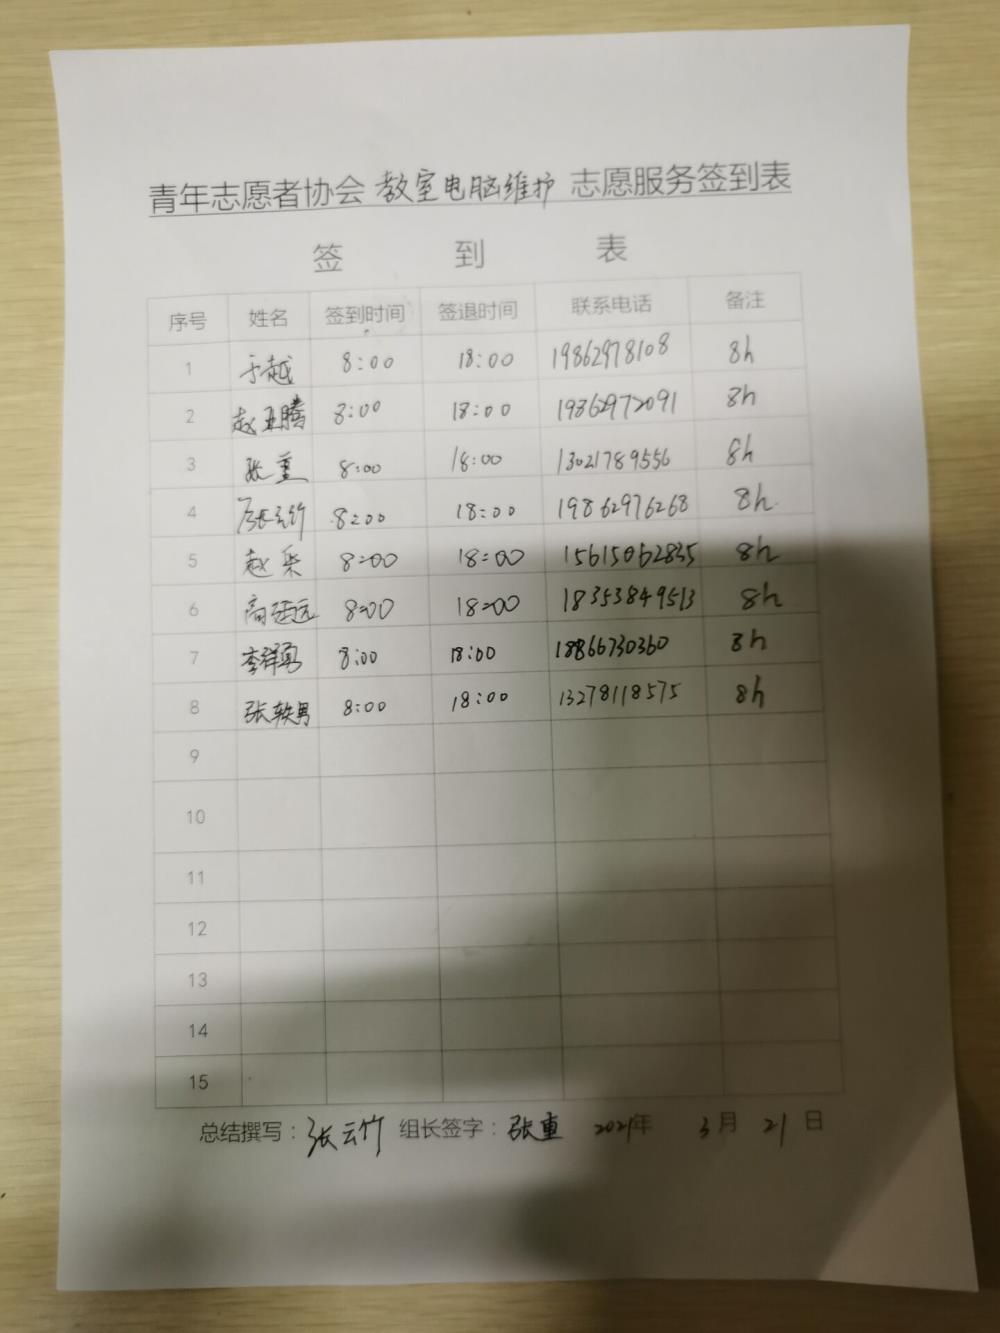 青年志愿者协会 教室电脑维护 志愿服务签到表
签 到 表
序号 姓名 签到时间 签退时间 联系电话 备注
1 于越 8:00 18:00 19862978108 8h
2 赵亚腾 8:00 18:00 19862972091 8h
3 张重 8:00 18:00 13021789556 8h
4 张云竹 8:00 18:00 19862976268 8h
5 赵 8:00 18:00 15615062835 8h
6 高延远 8:00 18:00 18353849513 8h
7 李祥勇 8:00 18:00 18866730360 8h
8 张轶男 8:00 18:00 13278118575 8h
9
10
11
12
13
14
15
总结撰写：张云竹 组长签字：张重 2021年 3月 21日